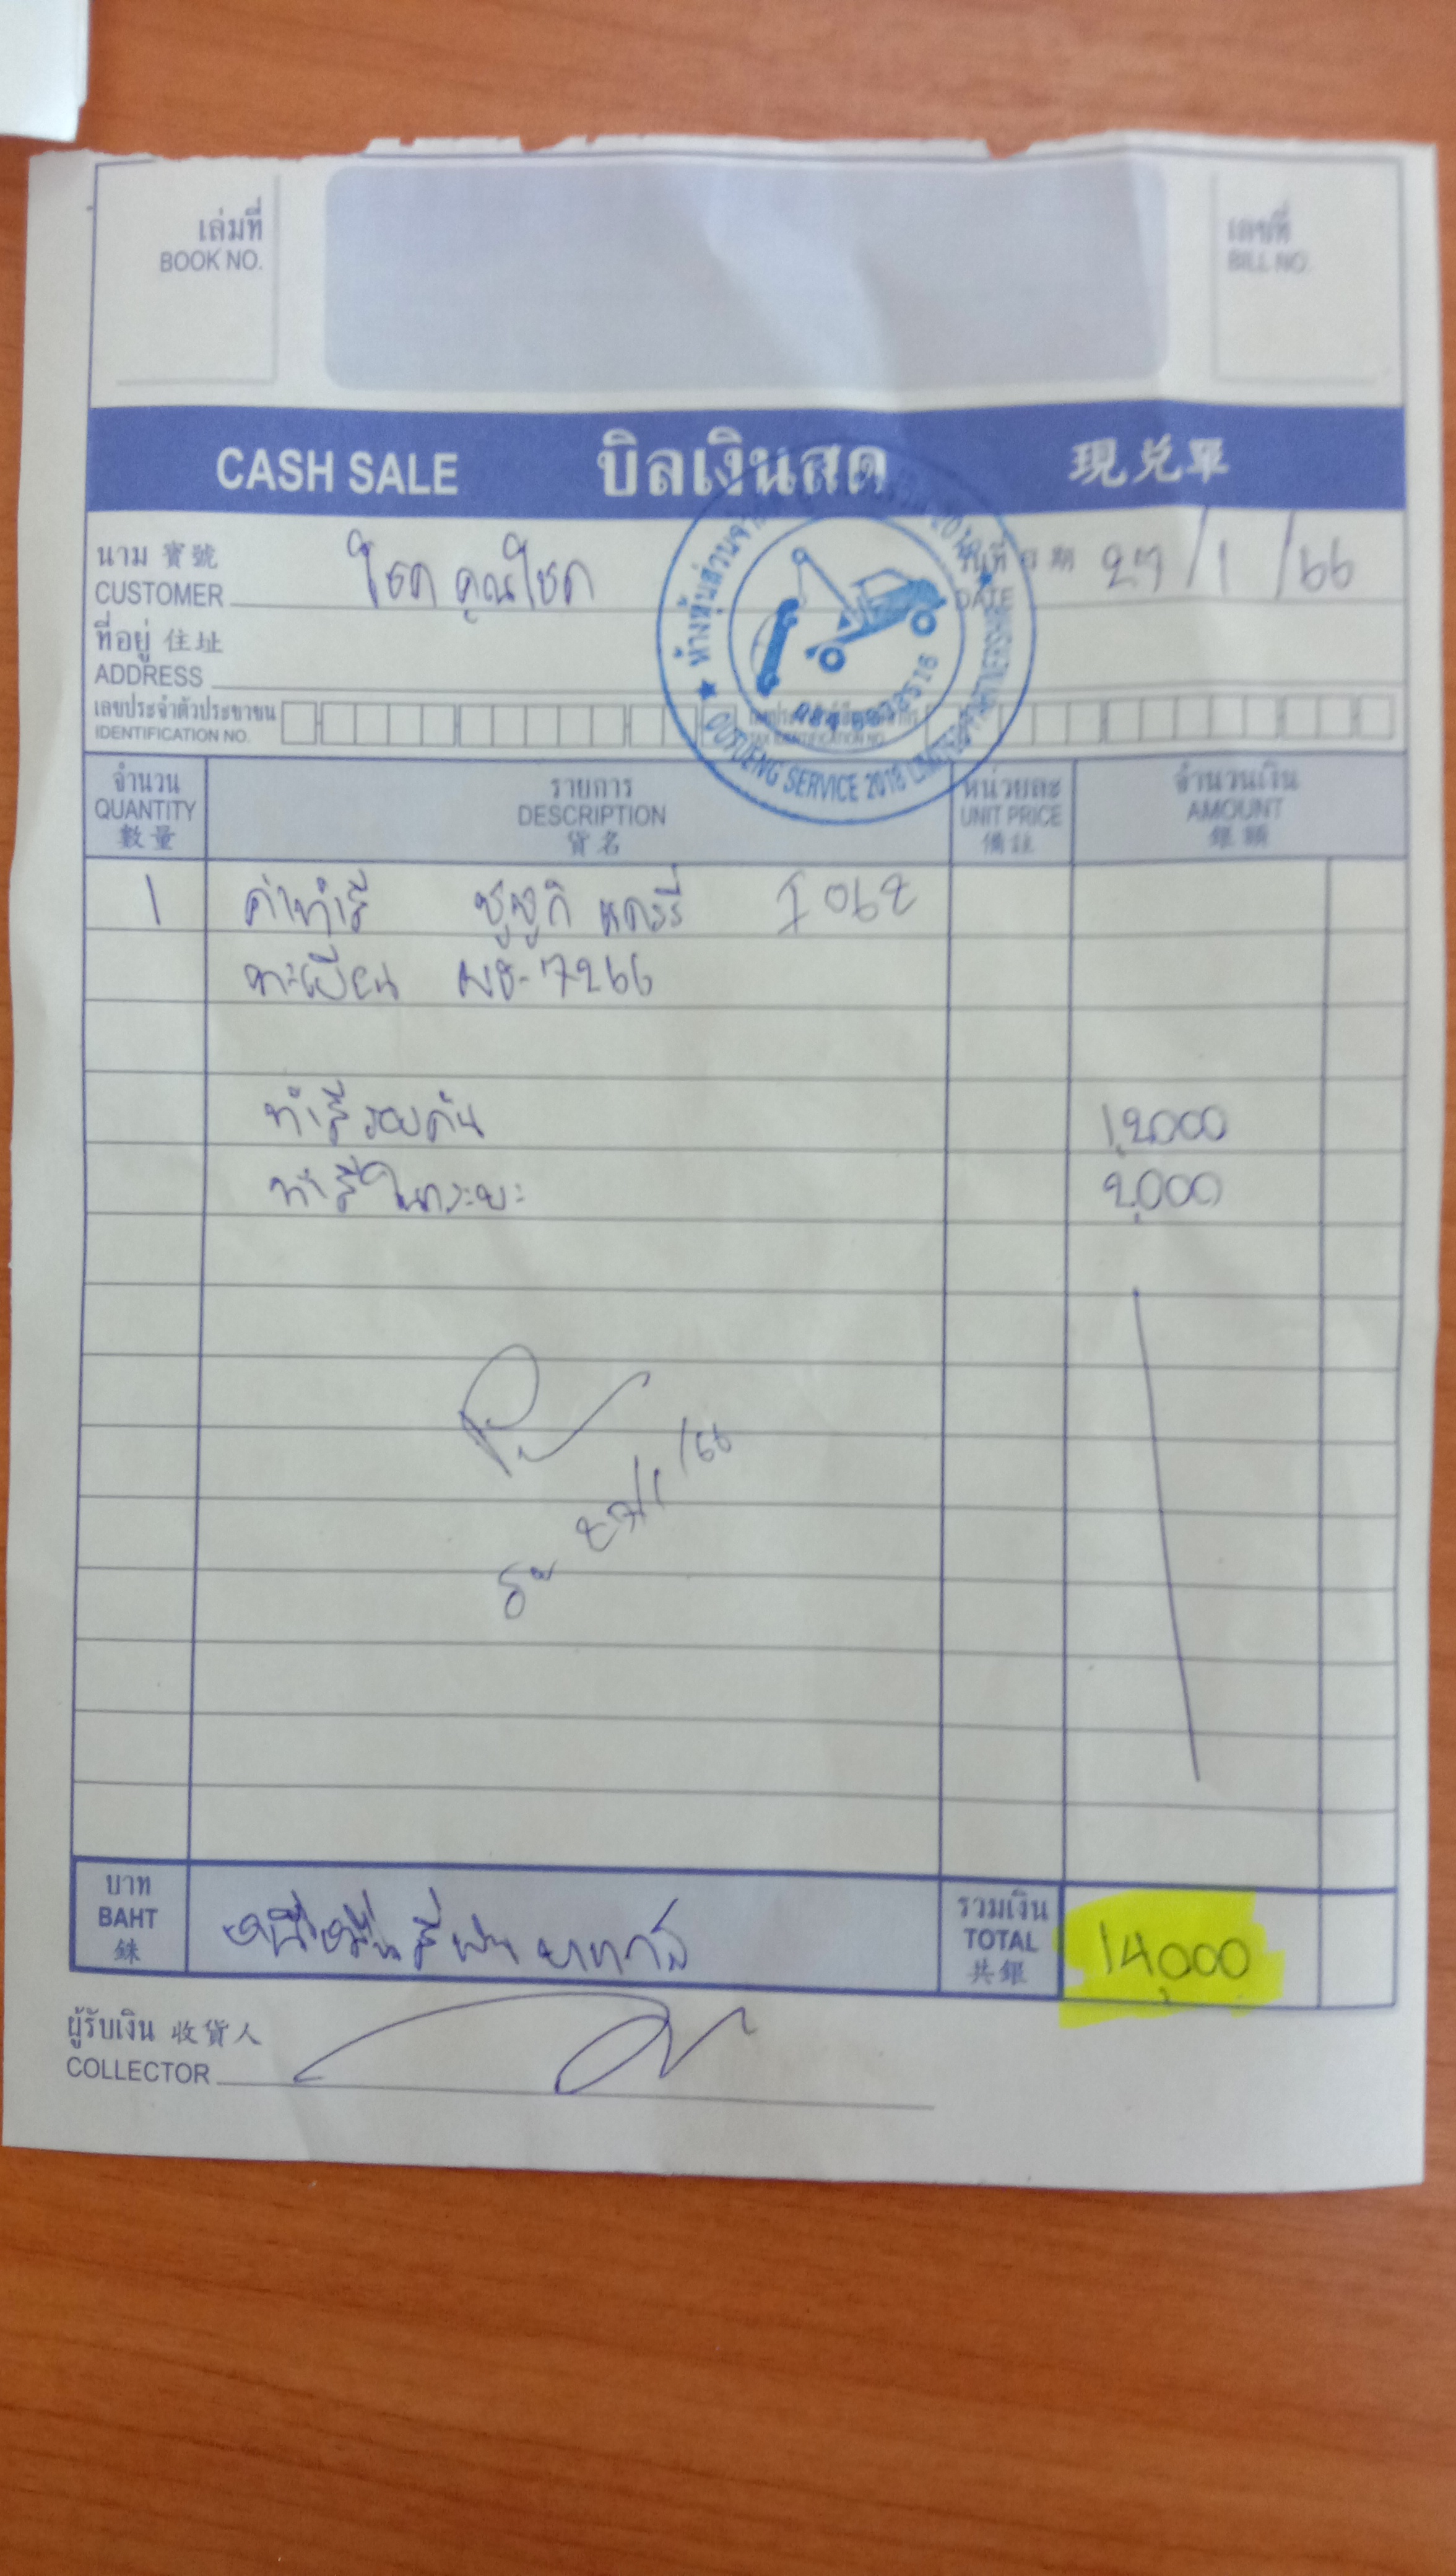 เล่มที่
BOOK NO.
เลขที่
BILL NO.
CASH SALE บิลเงินสด 現兌單
นาม 寶號
CUSTOMER โชค คุณโชค
วันที่ 27/1/66
DATE
ที่อยู่ 住址
ADDRESS
เลขประจำตัวประชาชน
IDENTIFICATION NO.
TAX IDENTIFICATION NO.
ห้างหุ้นส่วนจำกัด
SERVICE 2018 LIMITED PARTNERSHIP
จำนวน รายการ หน่วยละ จำนวนเงิน
QUANTITY DESCRIPTION UNIT PRICE AMOUNT
數量 貨名 備註 銀額
1 ค่าทำสี ซูซูกิ แครรี่
ทะเบียน 7266
ทำสีรอบคัน 12,000
ทำสีในกระบะ 2,000
27/1/66
บาท รวมเงิน
BAHT หนึ่งหมื่นสี่พันบาทถ้วน TOTAL 14,000
銖 共銀
ผู้รับเงิน 收貨人
COLLECTOR